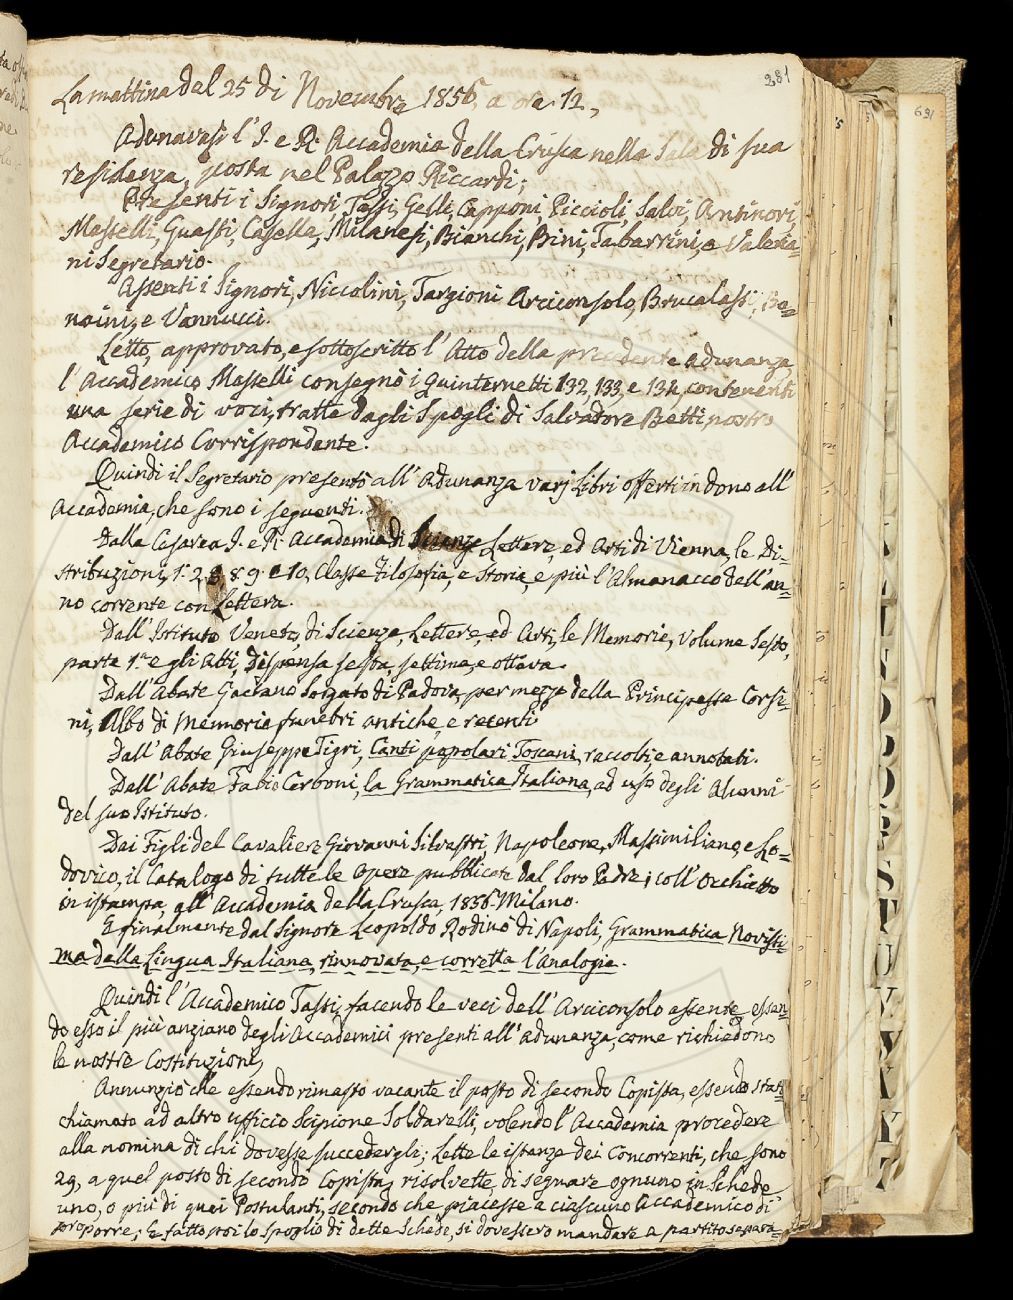 281
La mattina del 25 di Novembre 1856, a ore 12,
Adunavasi l'I. e R. Accademia della Crusca nella Sala di sua
residenza, posta nel Palazzo Riccardi;
Presenti i Signori, Tassi, Gelli, Capponi, Piccioli, Salvi, Antinori,
Masselli, Guasti, Casella, Milanesi, Bianchi, Bini, Tabarrini, e Valeria=
ni Segretario.
Assenti i Signori, Niccolini, Targioni Arciconsolo, Brucalassi, Bo=
naini, e Vannucci.
Letto, approvato, e sottoscritto l'Atto della precedente adunanza,
l'Accademico Masselli consegnò i Quinternetti 132, 133, e 134, contenenti
una serie di voci, tratte dagli Spogli di Salvadore Betti, nostro
Accademico Corrispondente.
Quindi il Segretario presentò all'Adunanza varj Libri offerti in dono all'
Accademia, che sono i seguenti.
Dalla Cesarea I. e R. Accademia di Scienze Lettere, ed Arti di Vienna, le Di=
stribuzioni, 1. 2. 8. 9. e 10, Classe Filosofia, e Storia, e più l'Almanacco dell'an=
no corrente con Lettera.
Dall'Istituto Veneto, di Scienze, Lettere, ed Arti, le Memorie, Volume Sesto,
parte 1.a e gli Atti, dispensa sesta, settima, e ottava.
Dall'Abate Gaetano Sorgato di Padova, per mezzo della Principessa Corsi=
ni, Albo di Memorie funebri antiche, e recenti
Dall'Abate Giuseppe Tigri, Canti popolari Toscani, raccolti, e annotati.
Dall'Abate Fabio Cerboni, la Grammatica Italiana, ad uso degli Alunni
del suo Istituto.
Dai Figli del Cavaliere Giovanni Silvestri, Napoleone, Massimiliano, e Lo=
dovico, il Catalogo di tutte le Opere pubblicate dal loro Padre, coll'Occhietto
in istampa, all'Accademia della Crusca, 1856. Milano.
E finalmente dal Signore Leopoldo Rodinò di Napoli, Grammatica Novissi=
ma della Lingua Italiana, rinnovata, e corretta l'Analogia.
Quindi l'Accademico Tassi, facendo le veci dell'Arciconsolo assente, essen=
do esso il più anziano degli Accademici presenti all'adunanza, come richiedono
le nostre Costituzioni,
Annunziò che essendo rimasto vacante il posto di secondo Copista, essendo stato
chiamato ad altro ufficio Scipione Soldarelli, volendo l'Accademia procedere
alla nomina di chi dovesse succedergli; Lette le istanze dei Concorrenti, che sono
29, a quel posto di secondo Copista, risolvette di segnare ognuno in Schede
uno, o più di quei Postulanti, secondo che piacesse a ciascuno Accademico di
proporre; E fatto poi lo Spoglio di dette Schede, si dovessero mandare a partito separa=
691
S
T
U
V
W
X
Y
Z